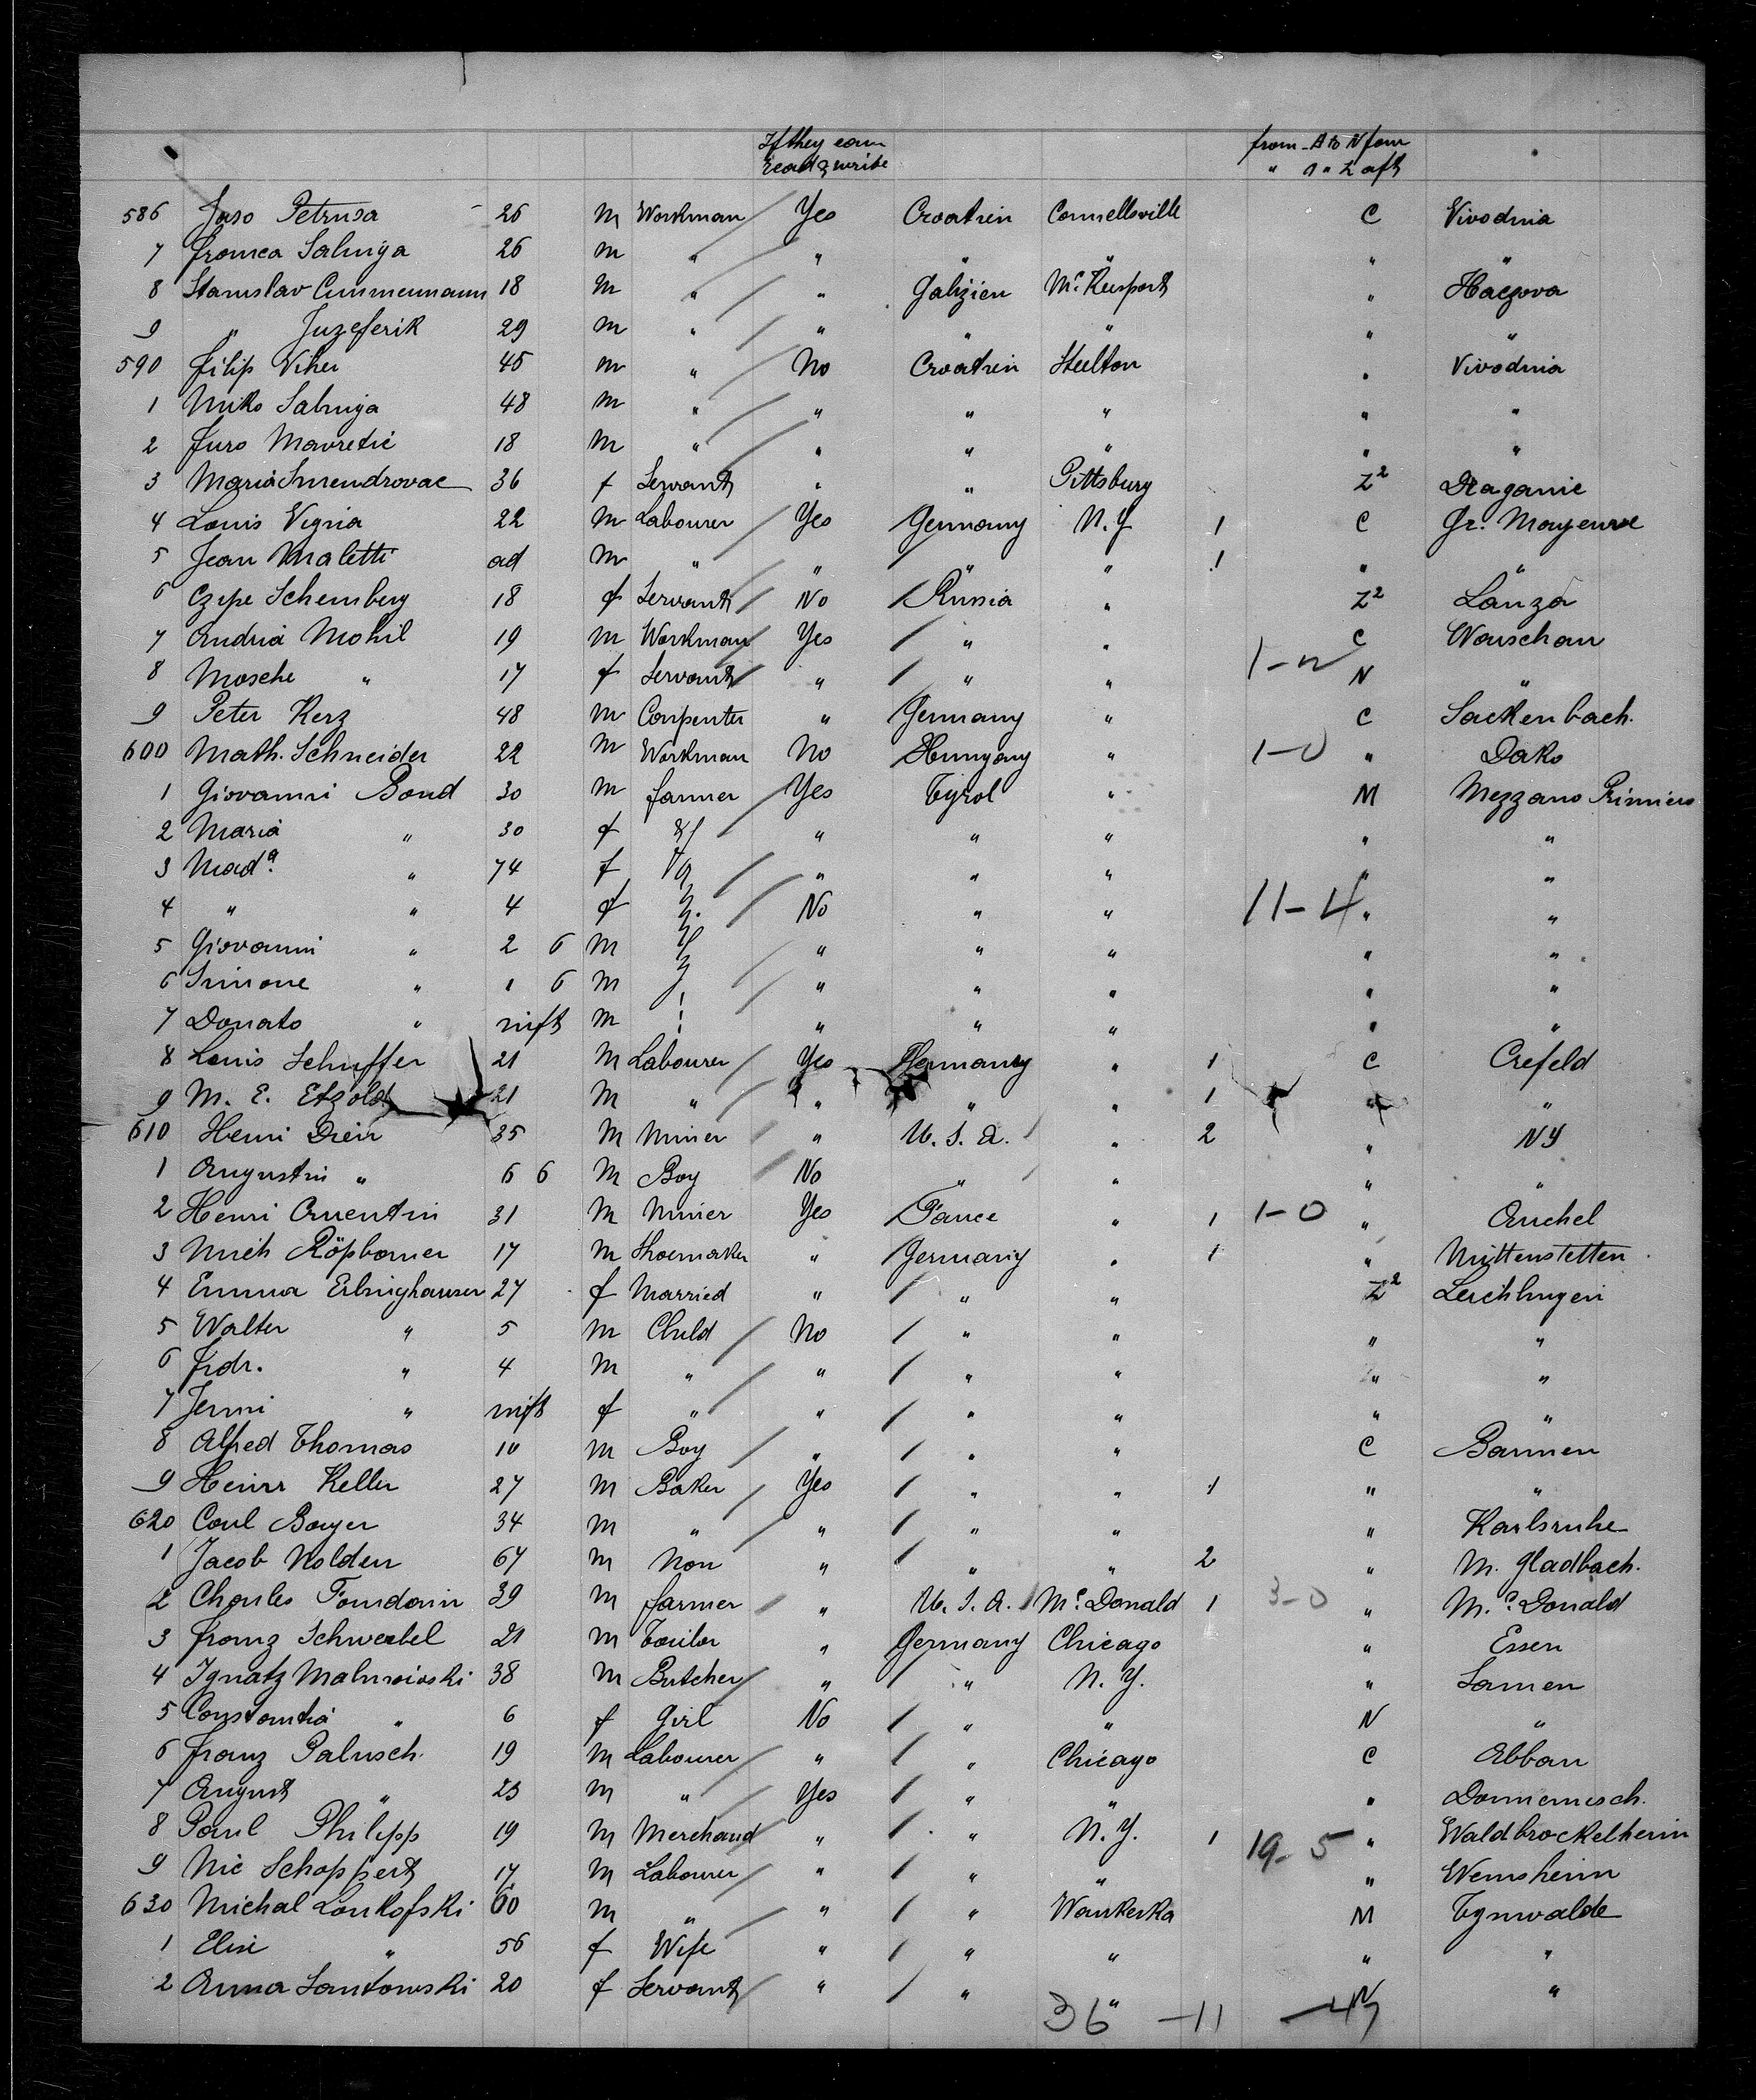 If they can from A to N four
read & write " n " Z aft
586 Juso Petrusa 26 m Workman Yes Croatien Connellsville C Vivodnia
7 franca Salniga 26 m " " " " " "
8 Stanislav 18 m " " Galizien Mc Keesport " Haczova
9 " Juzeferik 29 m " " " " " "
590 filip Viher 45 m " No Croatien Steelton " Vivodnia
1 Miko Salniga 48 m " " " " " "
2 Juro Mavretic 18 m " " " " " "
3 Maria Smendrovac 36 f Servant " " Pittsburg Z2 Draganic
4 Louis Vigria 22 m Labourer Yes Germany N. Y 1 C Gr. Moyeuvre
5 Jean Maletti ad m " " " " 1 " "
6 Czipe Schemberg 18 f Servant No Russia " Z2 Lanza
7 Andria Mohil 19 m Workman Yes " " C Warschau
8 Mosche " 17 f Servant " " " 1-0 N "
9 Peter Kerz 48 m Carpenter " Germany " C Sackenbach.
600 Math. Schneider 22 m Workman No Hungary " 1-0 " Dako
1 Giovanni Bond 30 m farmer Yes Tyrol " M Mezzano Primiero
2 Maria " 30 f " " " " "
3 Mada " 74 f " " " " "
4 " " 4 f No " " 11-4 " "
5 Giovanni " 2 6 m " " " " "
6 Simone " 1 6 m " " " " "
7 Donato " inft m " " " " "
8 Louis Schuffer 21 M Labourer Yes Germany " 1 C Crefeld
9 M. E. Etzold 21 M " " " " 1 " "
610 Henri Drein 35 M Miner " U. S. A. " 2 " NY
1 Augustin " 6 6 M Boy No " " " "
2 Henri Quentin 31 M Miner Yes France " 1 1-0 " Auchel
3 Mich Röpborner 17 M Shoemaker " Germany " 1 " Mittenstetten
4 Emma Erlinghauser 27 f Married " " " Z2 Leichlingen
5 Walter " 5 m Child No " " " "
6 Frdr. " 4 m " " " " " "
7 Jenni " inft f " " " " " "
8 Alfred Thomas 10 m Boy " " " C Barmen
9 Heinr Keller 27 M Baker Yes " " 1 " "
620 Carl Bayer 34 m " " " " " Karlsruhe
1 Jacob Nolden 67 m Non " " " 2 " M. Gladbach.
2 Charles Foudarin 39 m farmer " U. S. A. Mc Donald 1 3-0 " Mc Donald
3 franz Schwebel 21 m Tailor " Germany Chicago " Essen
4 Ignatz Malinoivski 38 m Butcher " " N. Y. " Samen
5 Constantia " 6 f Girl No " " N "
6 franz Palusch. 19 m Labourer " " Chicago C Abbau
7 August " 23 m " Yes " " " Donnernisch.
8 Paul Philipp 19 M Merchand " " N. Y. 1 19-5 " Waldbrockelheim
9 Nic Schoppert 17 M Labourer " " " " Wemsheim
630 Michal Lonkofski 60 m " " " Waukerka M Tynwalde
1 Elise " 56 f Wife " " " " "
2 Anna Santowski 20 f Servant " " " N "
36 -11 -47